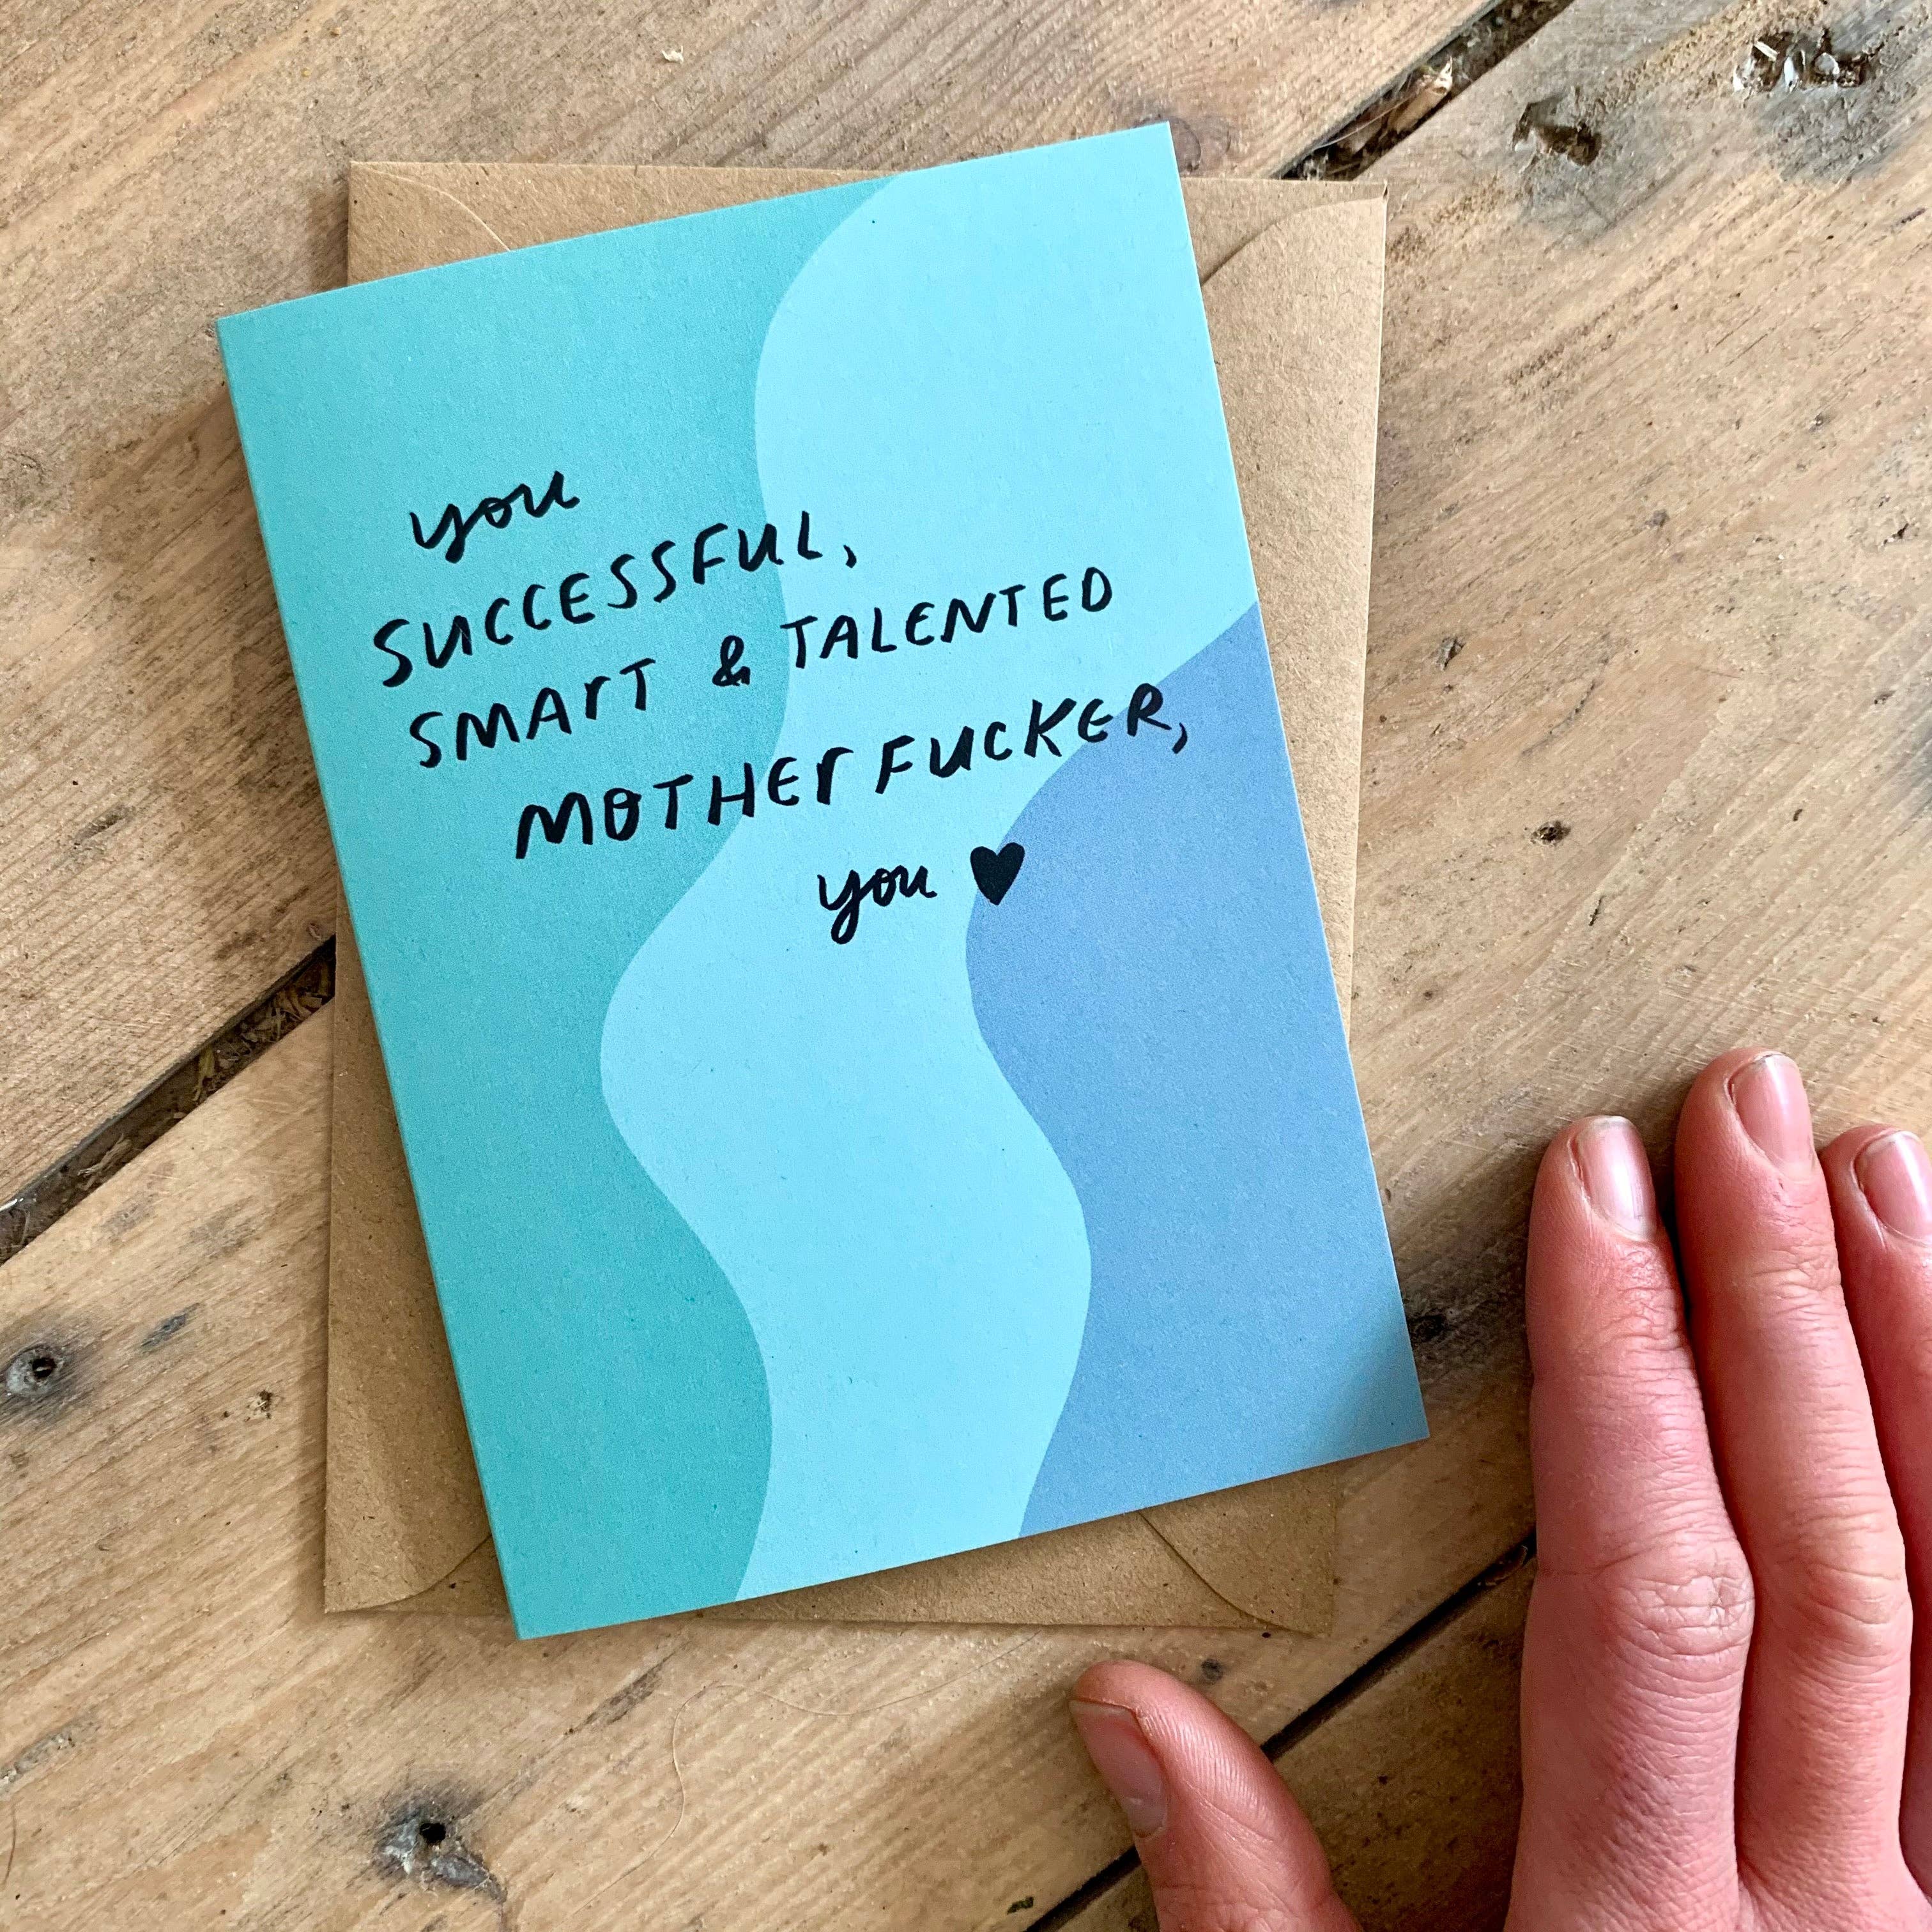 you
SUCCESSFUL,
SMArT & TALENTED
MOTHErFUCKER,
you ♥